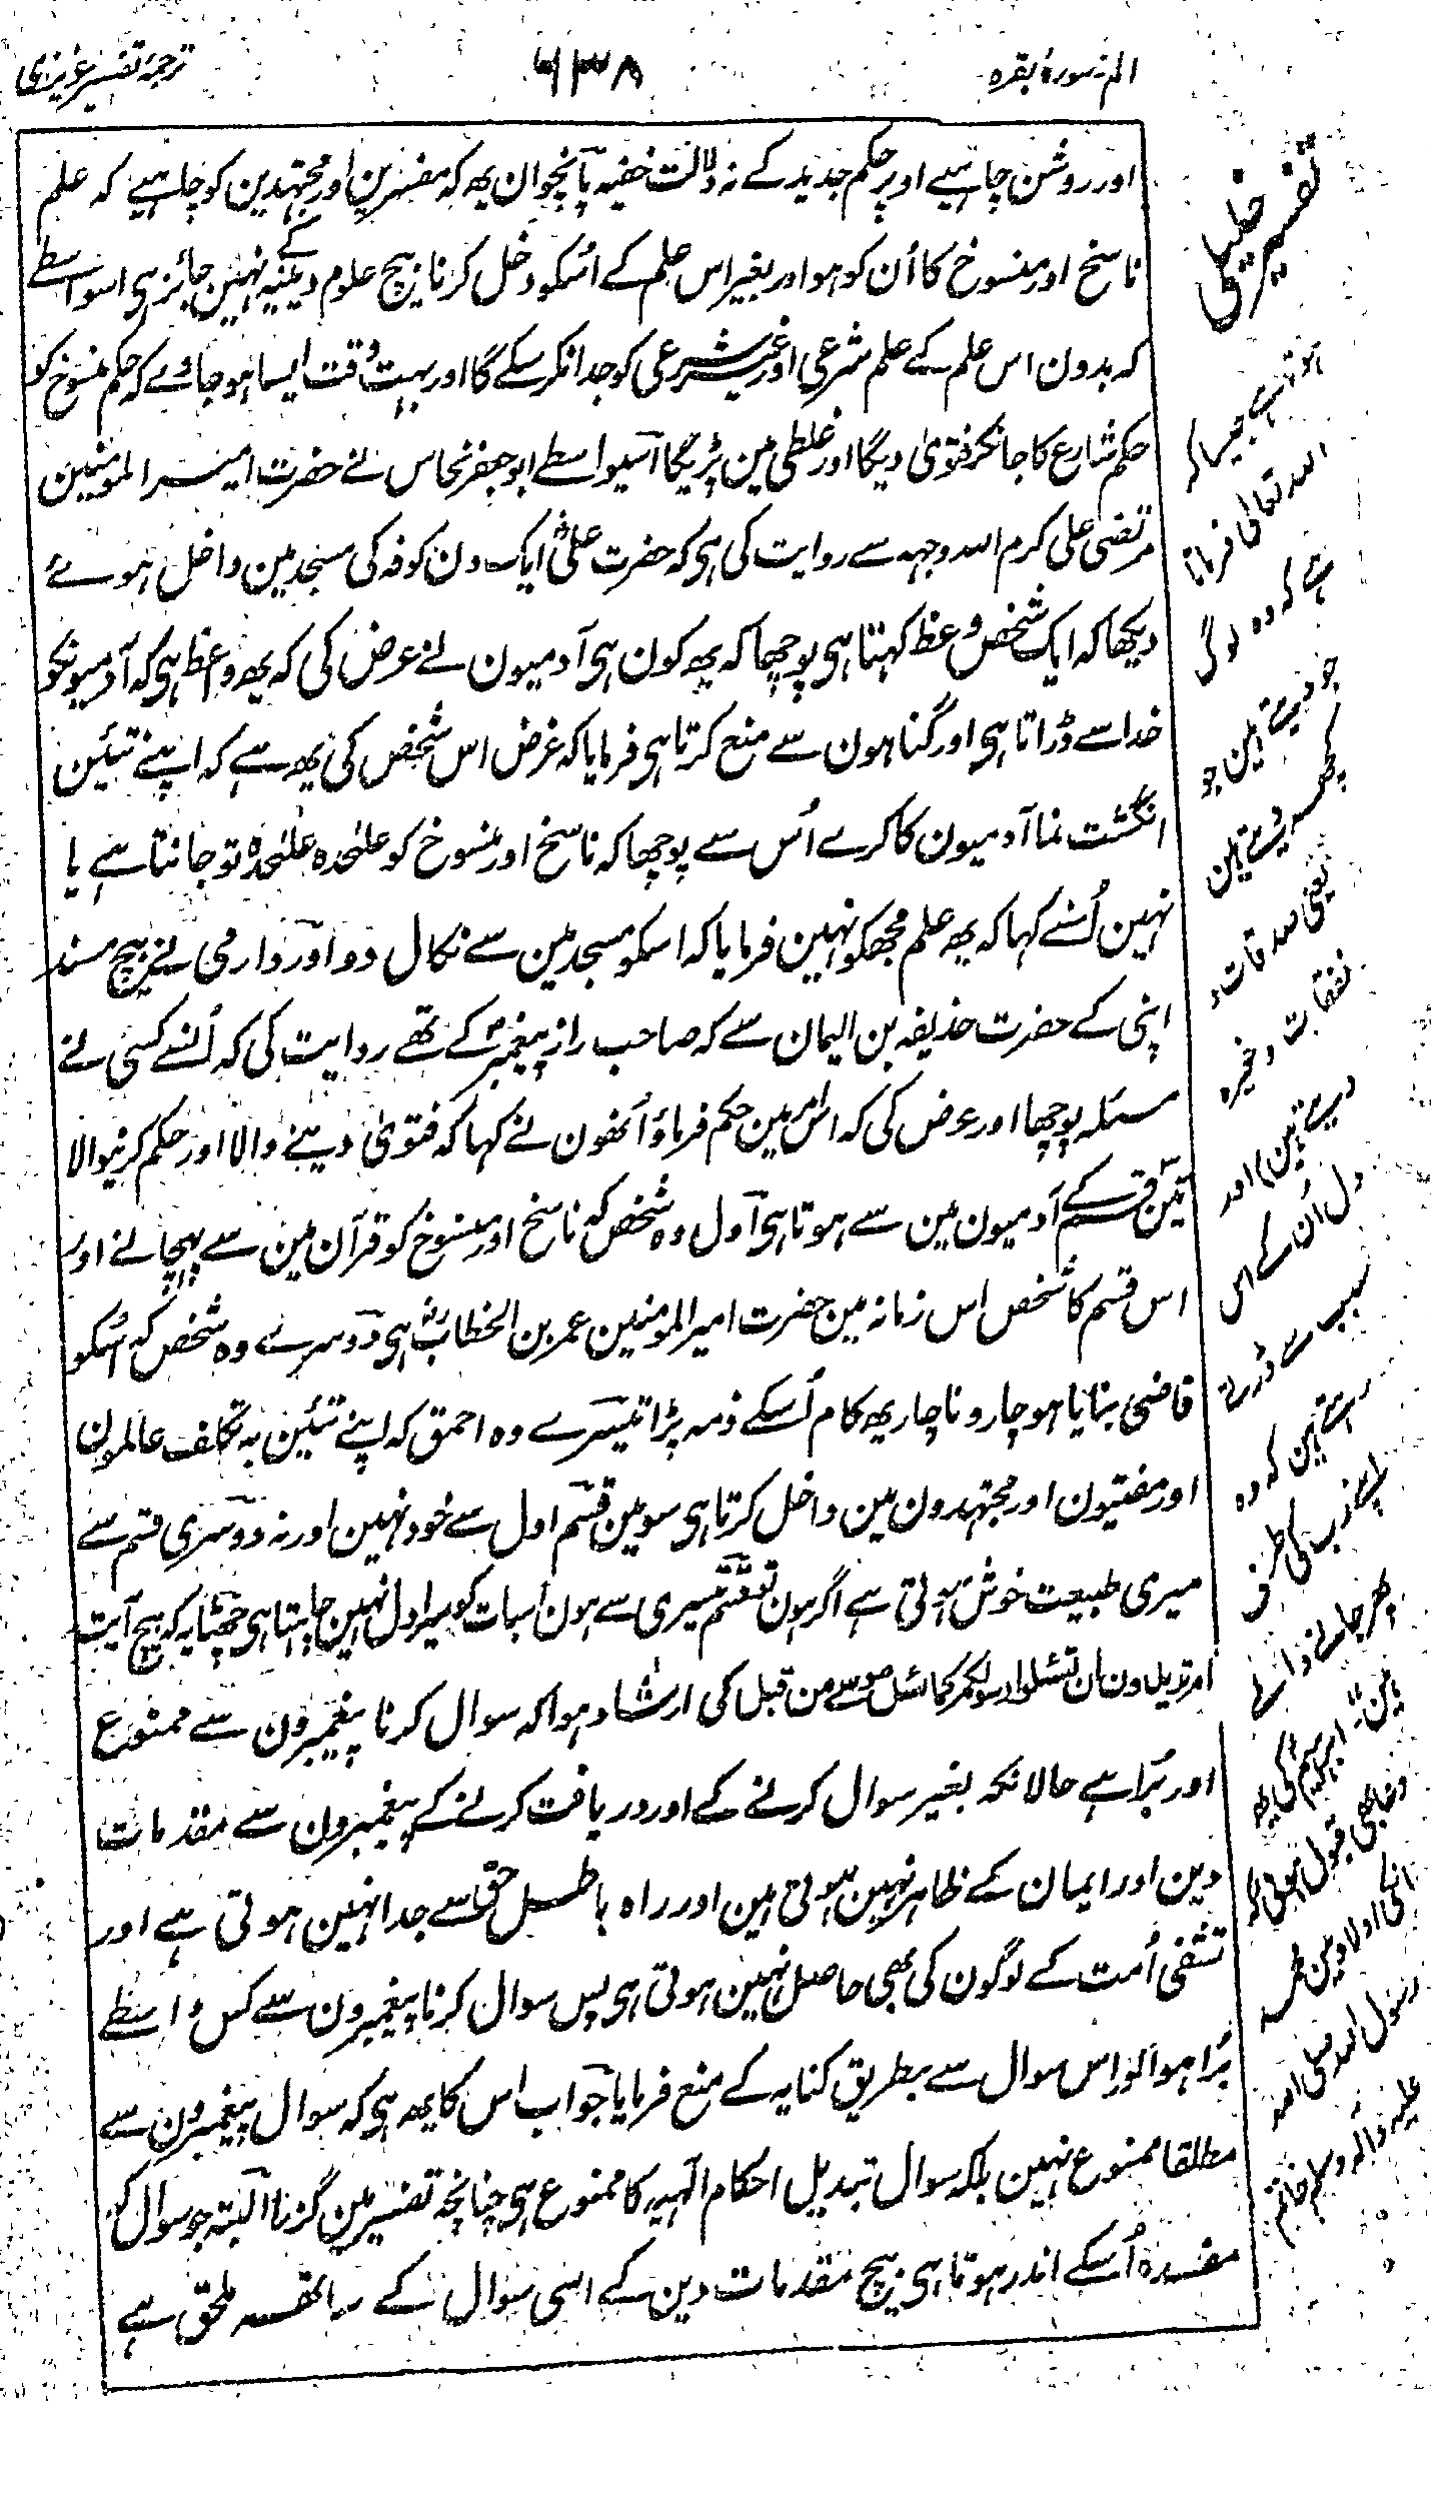 الم۔ سورۂ بقرہ
۶۳۸
ترجمۂ تفسیر عزیزی
اور روشن چاہیے اوپر حکم جدید کے نہ دلالت خفیہ پانچوان یہہ کہ مفسرین اور مجتہدین کو چاہیے کہ علم
ناسخ اور منسوخ کا اُن کو ہو اور بغیر اس علم کے اُسکو دخل کرنا بیچ علوم دینیہ کے نہین جائز ہی اسواسطے
کہ بدون اس علم کے علم شرعی اور غیر شرعی کو جدا نکر سکے گا اور بہت وقت ایسا ہو جاوے کہ حکم منسوخ کو
حکم شارع کا جانکر فتویٰ دیگا اور غلطی مین پڑیگا اسیواسطے ابو جعفر نحاس نے حضرت امیر المومنین
مرتضی علی کرم اللہ وجہہ سے روایت کی ہی کہ حضرت علیؓ ایک دن کوفہ کی مسجد مین داخل ہوئے
دیکھا کہ ایک شخص وعظ کہتا ہی پوچھا کہ یہہ کون ہی آدمیون نے عرض کی کہ یہہ واعظ ہی کہ آدمیونکو
خدا سے ڈراتا ہی اور گناہون سے منع کرتا ہی فرمایا کہ غرض اس شخص کی یہہ ہے کہ اپنے تئین
انگشت نما آدمیون کا کرے اُس سے پوچھا کہ ناسخ اور منسوخ کو علٰحدہ علٰحدہ تو جانتا ہے یا
نہین اُسنے کہا کہ یہہ علم مجھکو نہین فرمایا کہ اسکو مسجد مین سے نکال دو اور دارمی نے بیچ مسند
اپنی کے حضرت حذیفہ بن الیمان سے کہ صاحب راز پیغمبرؐ کے تھے روایت کی کہ اُنسے کسی نے
مسئلہ پوچھا اور عرض کی کہ اس امر مین حکم فرماؤ اُنھون نے کہا کہ فتویٰ دینے والا اور حکم کرنیوالا
تین قسم کے آدمیون مین سے ہوتا ہی اول وہ شخص کہ ناسخ اور منسوخ کو قرآن مین سے پہچانے اور
اس قسم کا شخص اس زمانہ مین حضرت امیر المومنین عمر بن الخطابؓ ہی دوسرے وہ شخص کہ اُسکو
قاضی بنایا ہو چار و ناچار یہہ کام اُسکے ذمہ پڑا تیسرے وہ احمق کہ اپنے تئین بہ تکلف عالمون
اور مفتیون اور مجتہدون مین داخل کرتا ہی سو مین قسم اول سے خود نہین اور نہ دوسری قسم سے
میری طبیعت خوش ہوتی ہے اگر ہون تو قسم تیسری سے ہون اسبات کو میرا دل نہین چاہتا ہی چھٹا یہ کہ بیچ آیت
ام تریدون ان تسئلوا رسولکم کما سئل موسے من قبل کی ارشاد ہوا کہ سوال کرنا پیغمبرون سے ممنوع
اور بُرا ہے حالانکہ بغیر سوال کرنے کے اور دریافت کرنے کے پیغمبرون سے مقدمات
دین اور ایمان کے ظاہر نہین ہوتی ہین اور راہ باطل حق سے جدا نہین ہوتی ہے اور
تشفی اُمت کے لوگون کی بھی حاصل نہین ہوتی ہی پس سوال کرنا پیغمبرون سے کس واسطے
بُرا ہوا اور اِس سوال سے بطریق کنایہ کے منع فرمایا جواب اس کا یہہ ہی کہ سوال پیغمبرون سے
مطلقا ممنوع نہین بلکہ سوال تبدیل احکام الٰہیہ کا ممنوع ہی چنانچہ تفسیر مین گزرا البتہ جو سوال کہ
مفسدہ اُسکے اندر ہوتا ہی بیچ مقدمات دین کے اسی سوال کے ساتھہ ملحق ہے
تفسیر خلیلی
اللہ تعالی فرماتا
ہے کہ وہ لوگ
جو دیتے ہین جو
کچھہ دیتے ہین
یعنی صدقات و
نفقات وغیرہ
دیتے ہین اور
دل اُن کے اس
سبب سے ڈرتے
رہتے ہین کہ وہ
اپنے رب کی طرف
پھر جانے والے
ہین۔ ابراہیمؑ کی یہہ
دعا بھی قبول ہوئی کہ
انکی اولاد مین سے
رسول اللہ صلی اللہ
علیہ وآلہ وسلم خاتم